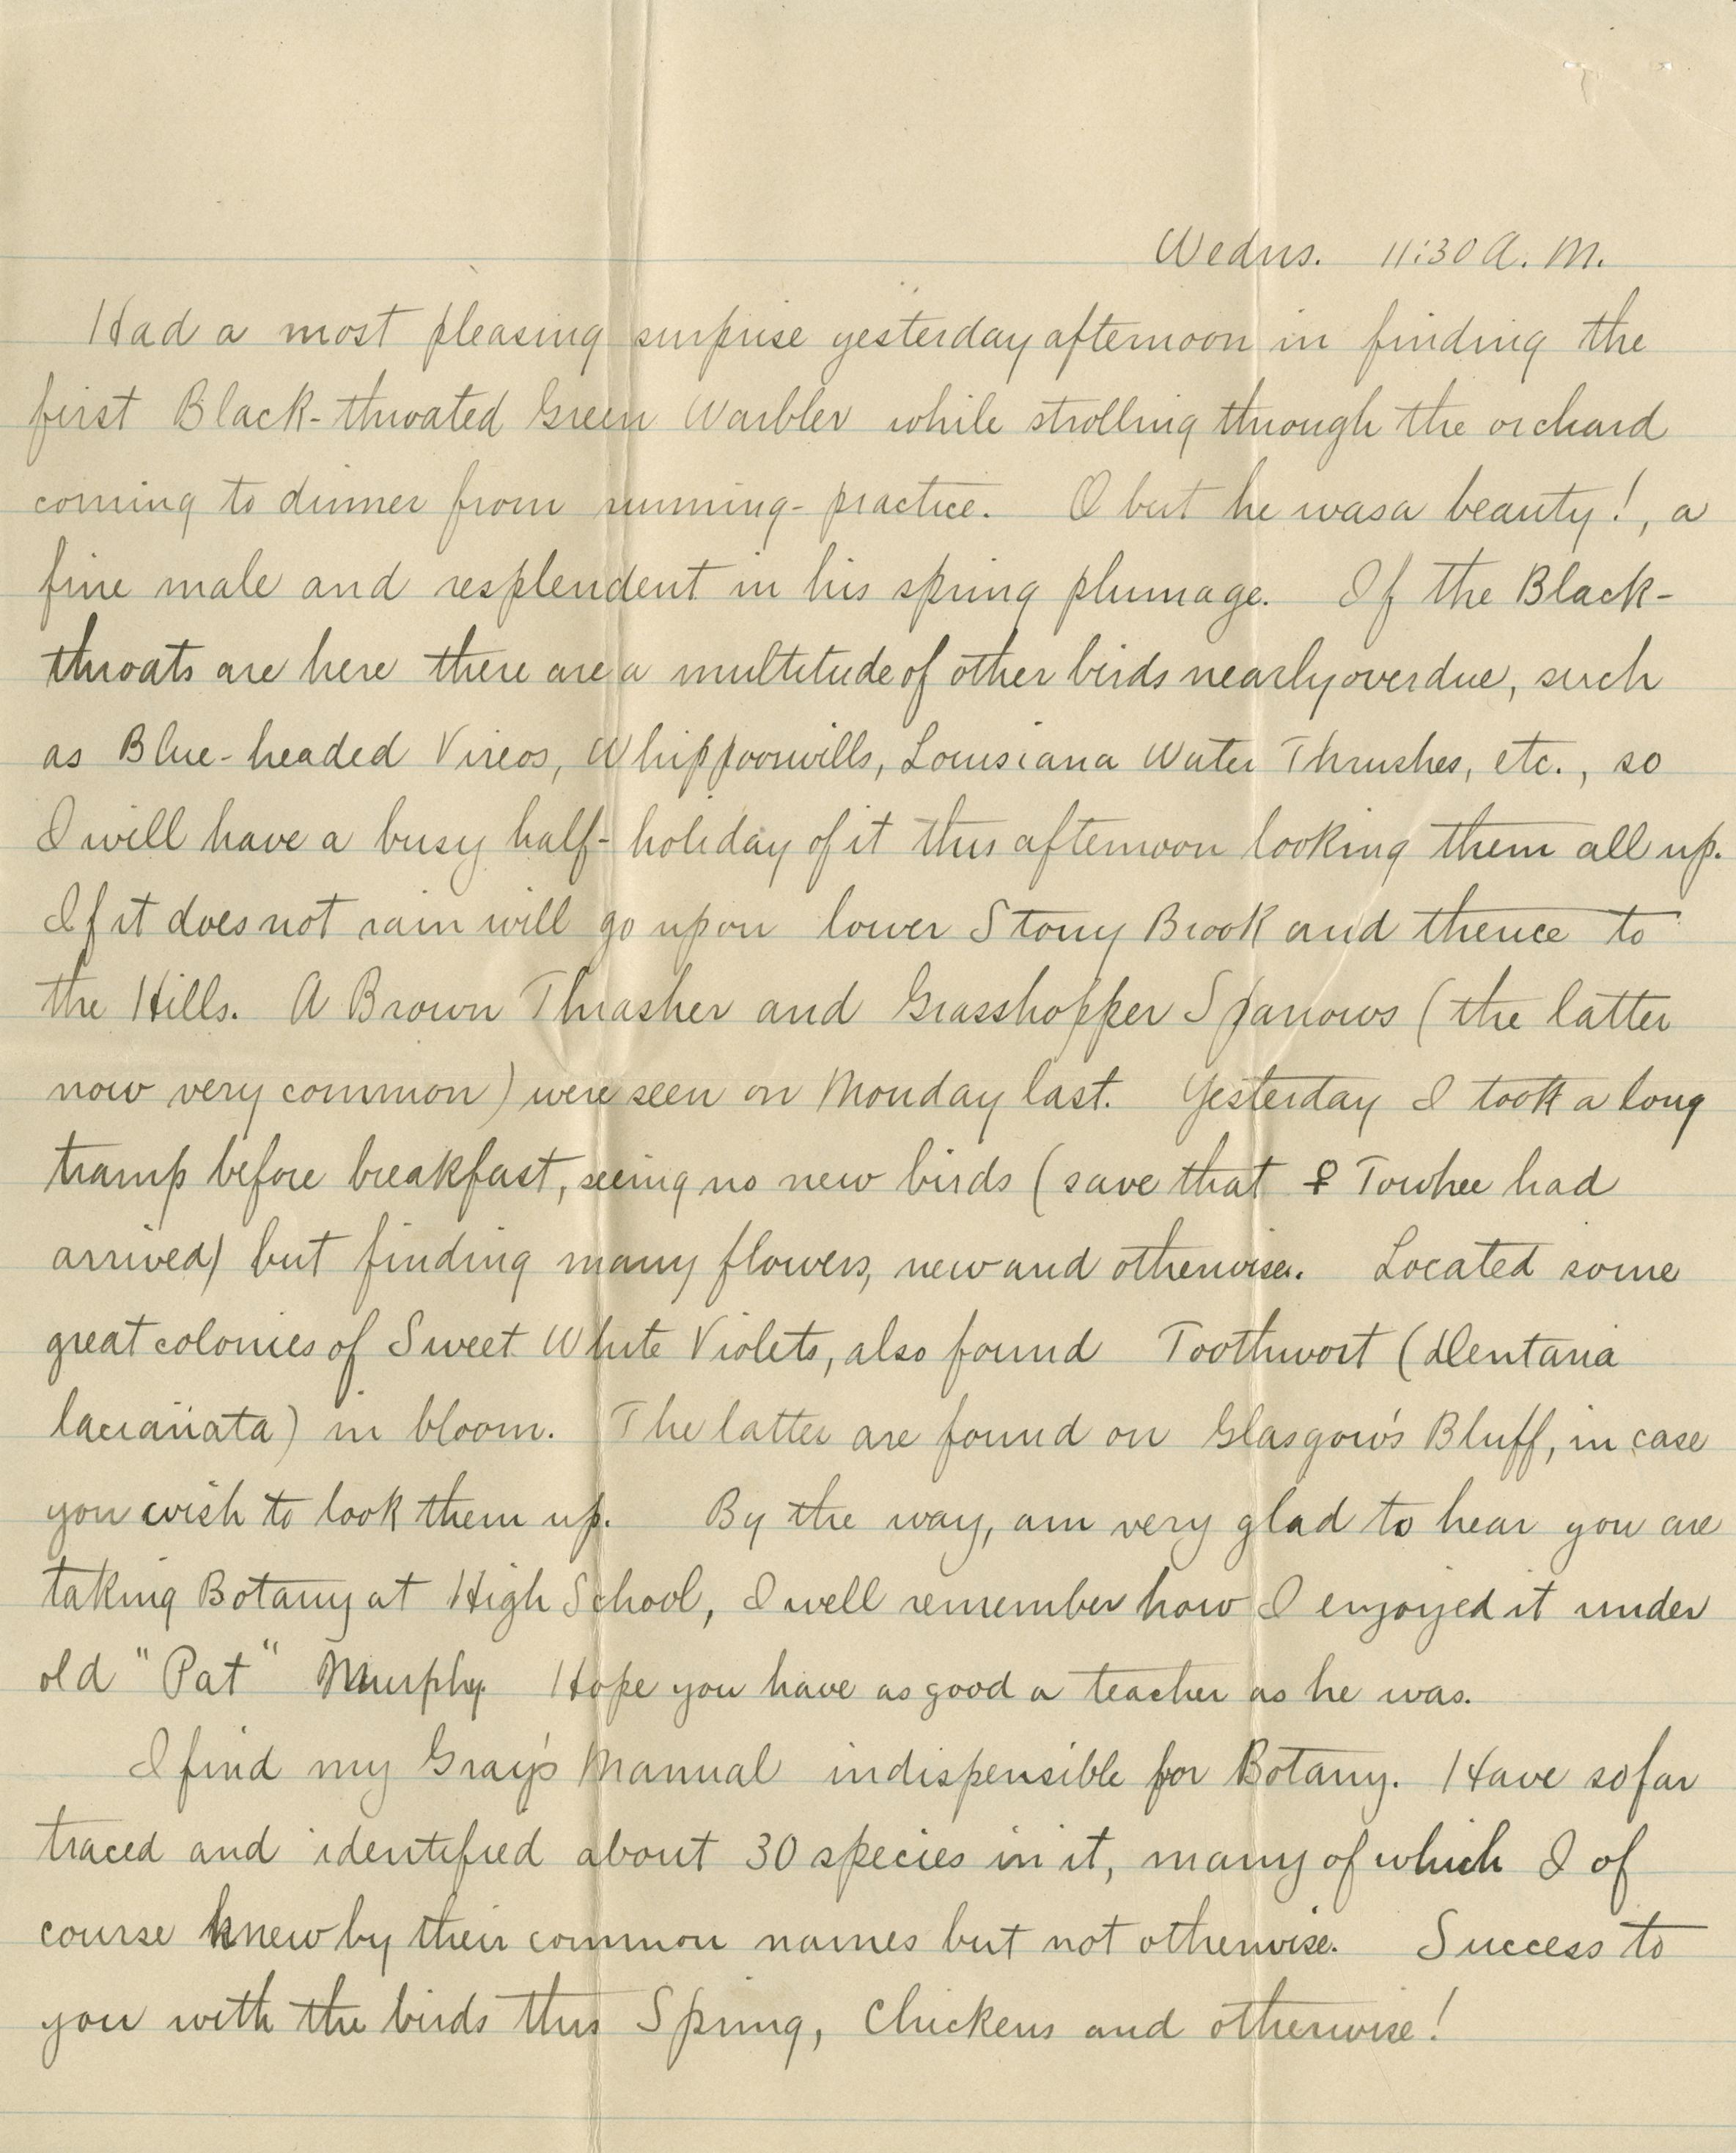 Wednes. 11:30 A. M.
Had a most pleasing surprise yesterday afternoon in finding the
first Black-throated Green Warbler while strolling through the orchard
coming to dinner from running-practice. O but he was a beauty!, a
fine male and resplendent in his spring plumage. If the Black-
throats are here there are a multitude of other birds nearly overdue, such
as Blue-headed Vireos, Whippoorwills, Louisiana Water Thrushes, etc., so
I will have a busy half-holiday of it this afternoon looking them all up.
If it does not rain will go upon lower Stony Brook and thence to
the Hills. A Brown Thrasher and Grasshopper Sparrows (the latter
now very common) were seen on Monday last. Yesterday I took a long
tramp before breakfast, seeing no new birds (save that ♀ Towhee had
arrived) but finding many flowers, new and otherwise. Located some
great colonies of Sweet White Violets, also found Toothwort (Dentaria
) in bloom. The latter are found on Glasgow's Bluff, in case
you wish to look them up. By the way, am very glad to hear you are
taking Botany at High School, I well remember how I enjoyed it under
old "Pat" Murphy. Hope you have as good a teacher as he was.
I find my Gray's Manual indispensible for Botany. Have so far
traced and identified about 30 species in it, many of which I of
course knew by their common names but not otherwise. Success to
you with the birds this Spring, chickens and otherwise!